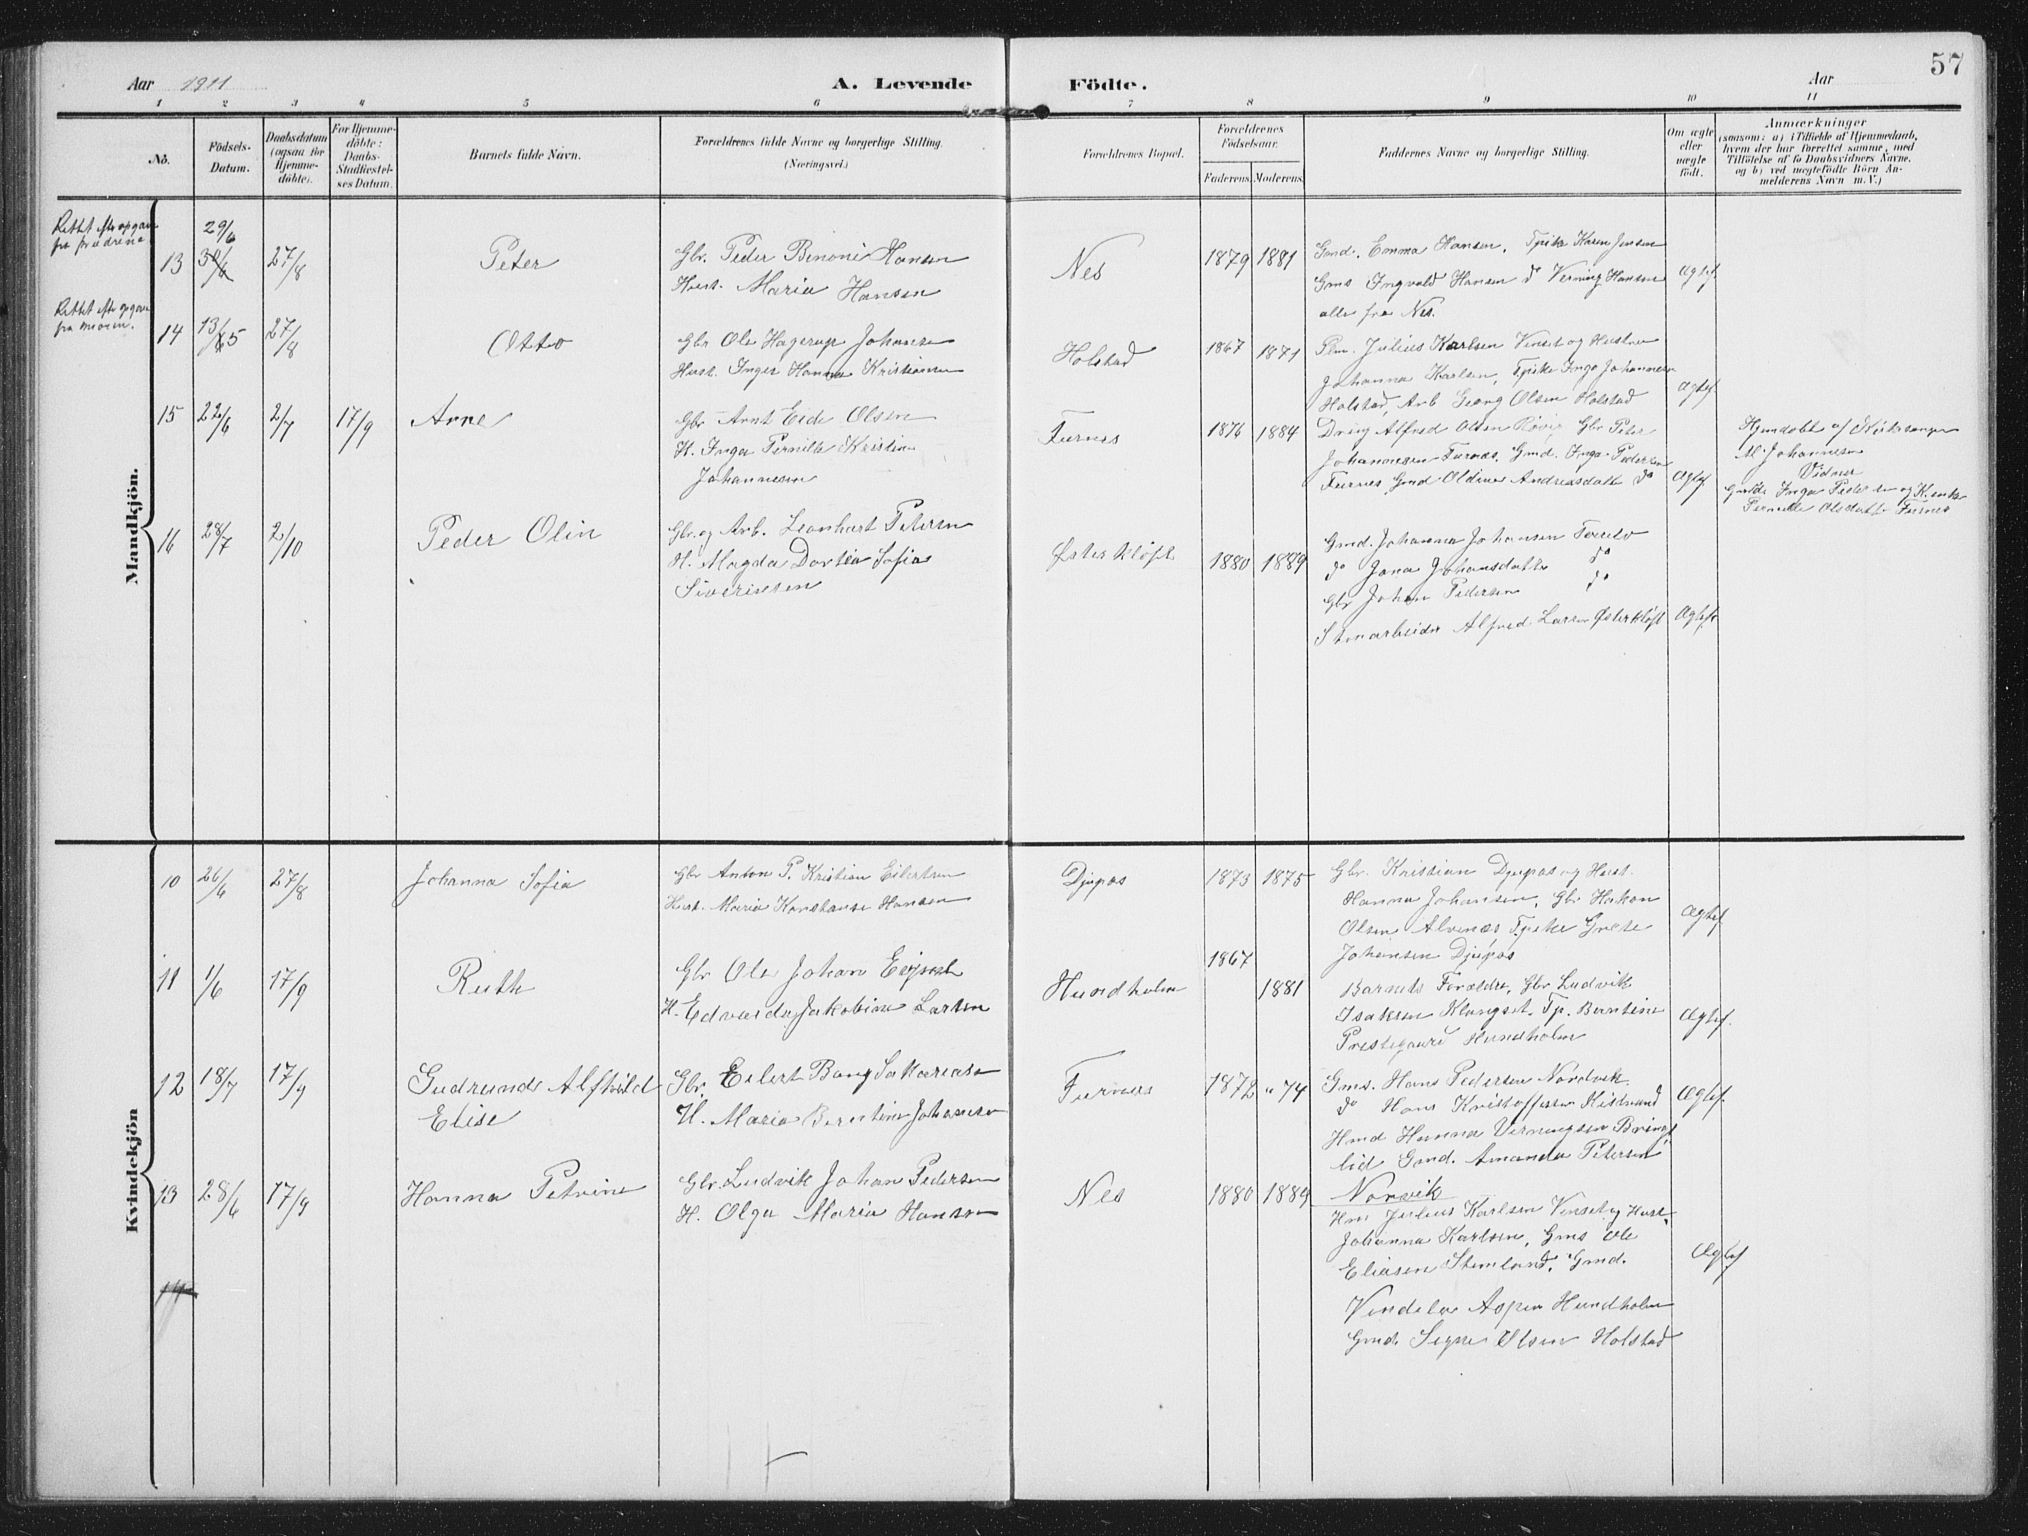 57
Aar 1911 A. Levende Födte. Aar
1 2 3 4 5 6 7 8 9 10 11
No.
Födsels-
Datum.
Daabsdatum
(ogsaa for
Hjemme-
döbte).
For Hjemme-
döbte:
Daabs-
Stadfæstel-
ses Datum.
Barnets fulde Navn.
Forældrenes fulde Navne og borgerlige Stilling.
(Næringsvei.)
Forældrenes Bopæl.
Forældrenes
Födselsaar.
Faderens. Moderens.
Faddernes Navne og borgerlige Stilling.
Om ægte
eller
uægte
födt.
Anmærkninger
(saasom: a) i Tilfælde af Hjemmedaab,
hvem der har forrettet samme, med
Tilföielse af to Daabsvidners Navne.
og b) ved uægtefödte Börn An-
melderens Navn m. V.)
Mandkjön.
Rettet efter opgave
fra
13 29/6 30/6 27/8 Peter
Gbr. Peder Benoni Hansen
Hust. Maria Hansen
Nes 1879 1881
Gmd. Emma Hansen, Tpike Karen Jensen
Gms Ingvald Hansen do Verning Hansen
alle fra Nes.
Ægtef.
Rettet efter opgave
fra moren.
14 13/5 27/8 Otto
Gbr Ole Hagerup Johansen
Hust. Inger Hanna Kristiansen
Holstad 1867 1871
Pbm. Julius Karlsen Vinset og Hustru
Johanna Karlsen, Tpike Inga Johannesen
Holstad, Arb. Georg Olsen Holstad
Ægtef.
15 22/6 2/7 17/9 Arne
Gbr Arnt Eide Olsen
H. Inga Pernille Kristine
Johannesen
Furnes 1876 1884
Dreng Alfred Olsen Røvig Gbr Peter
Johannesen Furnes, Gmd. Inga Pedersen
Furnes, Gmd Oldine Andreasdatter do
Ægtef.
Hjemdøbt af Kirkesanger
M Johannesen
Vidner
Inga Pedersen og K. enke
Pernille Olsdatter Furnes
16 28/7 2/10 Peder Olin
Gbr. og Arb. Leonhart Petersen
H. Magda Dortea Sofia
Siverinsen
Østerkløft 1880 1889
Gmd. Johanna Johansen
do Jana Johansdatter do
Gbr Johan Pedersen do
Stenarbeider Alfred Larsen Østerkløft
Ægtef.
Kvindekjön
10 26/6 27/8 Johanna Sofia
Gbr Anton P. Kristian Eilertsen
Hust. Maria Konstanse Hansen
Djupos 1873 1875
Gbr. Kristian Djupos og Hust.
Hanna Johansen, Gbr Hakon
Olsen Alvenes Tpike Grete
Johansen Djupos
Ægtef
11 1/6 17/9 Ruth
Gbr Ole Johan
H. Edvarda Jakobine Larsen
Hundholm 1867 1881
Barnets Forældre, Gbr Ludvik
Isaksen Klungset. Tp. Berntine
Prestegaard Hundholm
Ægtef.
12 18/7 17/9 Gudrunde Alfhild
Elise
Gbr. Eilert Bang Sakariasen
H. Maria Berntine Johansen
Furnes 1872 " 74
Gms. Hans Pedersen Nordvik
do Hans Kristoffersen
Hmd Hanna Verningsen Brings
lid Gmd. Amanda Petersen
Norvik
Ægtef.
13 28/6 17/9 Hanna Petrine
Gbr. Ludvik Johan Pedersen
H. Olga Maria Hansen
Nes 1880 1889
Hm Julius Karlsen Vinset og Hust.
Johanna Karlsen, Gms Ole
Eliasen Stemland, Gmd.
Aspen Hundholm
Gmd. Signe Olsen Holstad
Ægtef
14